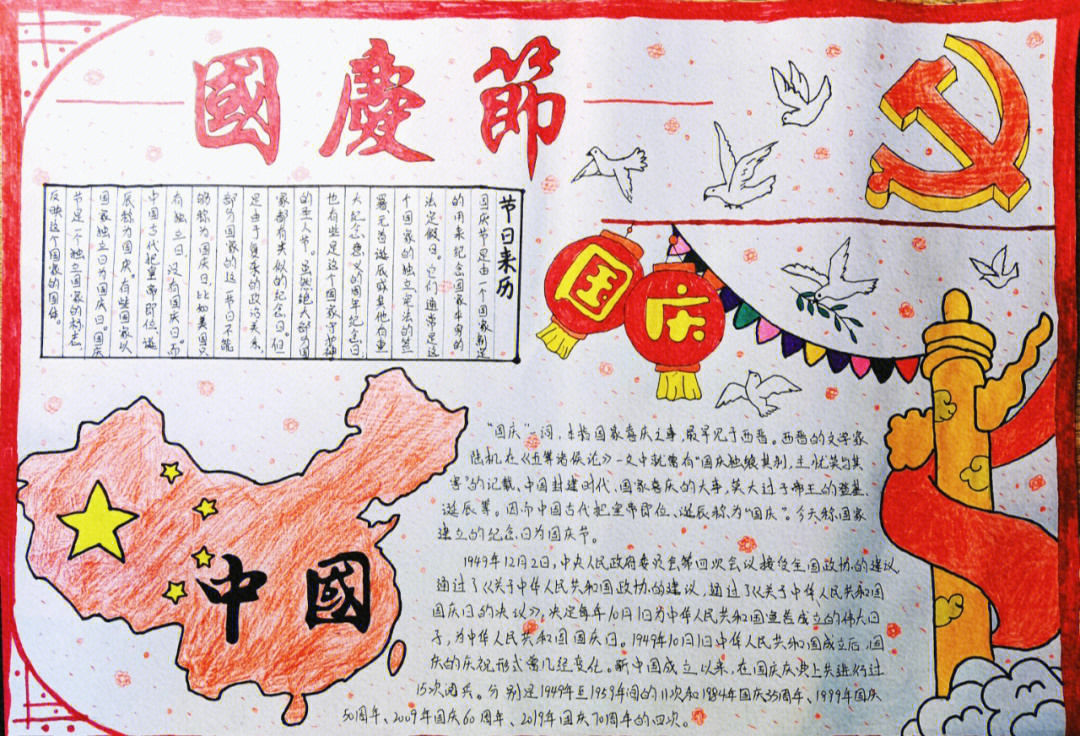 國慶節
节日来历
国庆节是由一个国家制定
的用来纪念国家本身的
法定假日。它们通常是这
个国家的独立、宪法的签
署、元首诞辰或其他有重
大纪念意义的周年纪念日;
也有些是这个国家守护神
的圣人节。虽然绝大部分国
家都有类似的纪念日。但
是由于复杂的政治关系,
部分国家的这一节日不能
够称为国庆日,比如美国只
有独立日,没有国庆日。而
中国古代把皇帝即位、诞
辰称为国庆。有些国家以
国家独立日为国庆日。国庆
节是一个独立国家的标志,
反映这个国家的国体。
国
庆
中國
“国庆”一词,本指国家喜庆之事,最早见于西晋。西晋的文学家
陆机在《五等诸侯论》一文中就曾有“国庆独飨其利,主忧莫与其
害”的记载、中国封建时代、国家喜庆的大事,莫大过于帝王的登基、
诞辰等。因而中国古代把皇帝即位、诞辰称为“国庆”。今天称国家
建立的纪念日为国庆节。
1949年12月2日,中央人民政府委员会第四次会议接受全国政协的建议
通过了《关于中华人民共和国政协的建议,通过了《关于中华人民共和国
国庆日的决议》,决定每年10月1日为中华人民共和国宣告成立的伟大日
子,为中华人民共和国国庆日。1949年10月1日中华人民共和国成立后,国
庆的庆祝形式曾几经变化。新中国成立以来,在国庆庆典上共进行过
15次阅兵。分别是1949年至1959年间的11次和1984年国庆35周年、1999年国庆
50周年、2009年国庆60周年、2019年国庆70周年的四次。